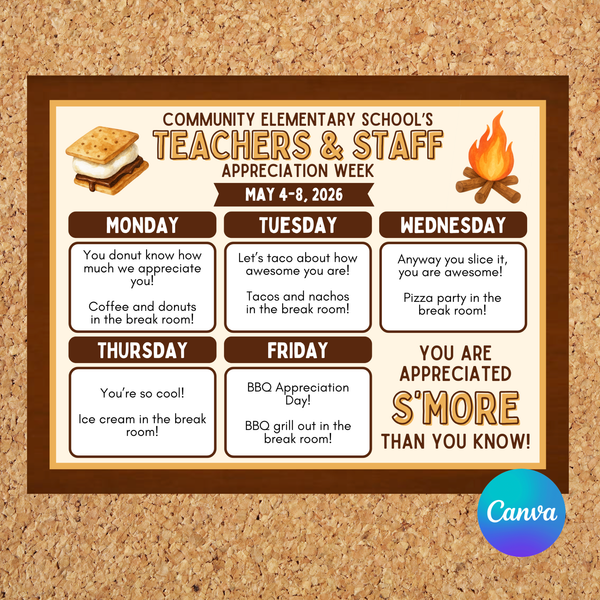 COMMUNITY ELEMENTARY SCHOOL'S
TEACHERS & STAFF
APPRECIATION WEEK
MAY 4-8, 2026
MONDAY
You donut know how
much we appreciate
you!
Coffee and donuts
in the break room!
TUESDAY
Let's taco about how
awesome you are!
Tacos and nachos
in the break room!
WEDNESDAY
Anyway you slice it,
you are awesome!
Pizza party in the
break room!
THURSDAY
You're so cool!
Ice cream in the break
room!
FRIDAY
BBQ Appreciation
Day!
BBQ grill out in the
break room!
YOU ARE
APPRECIATED
S'MORE
THAN YOU KNOW!
Canva